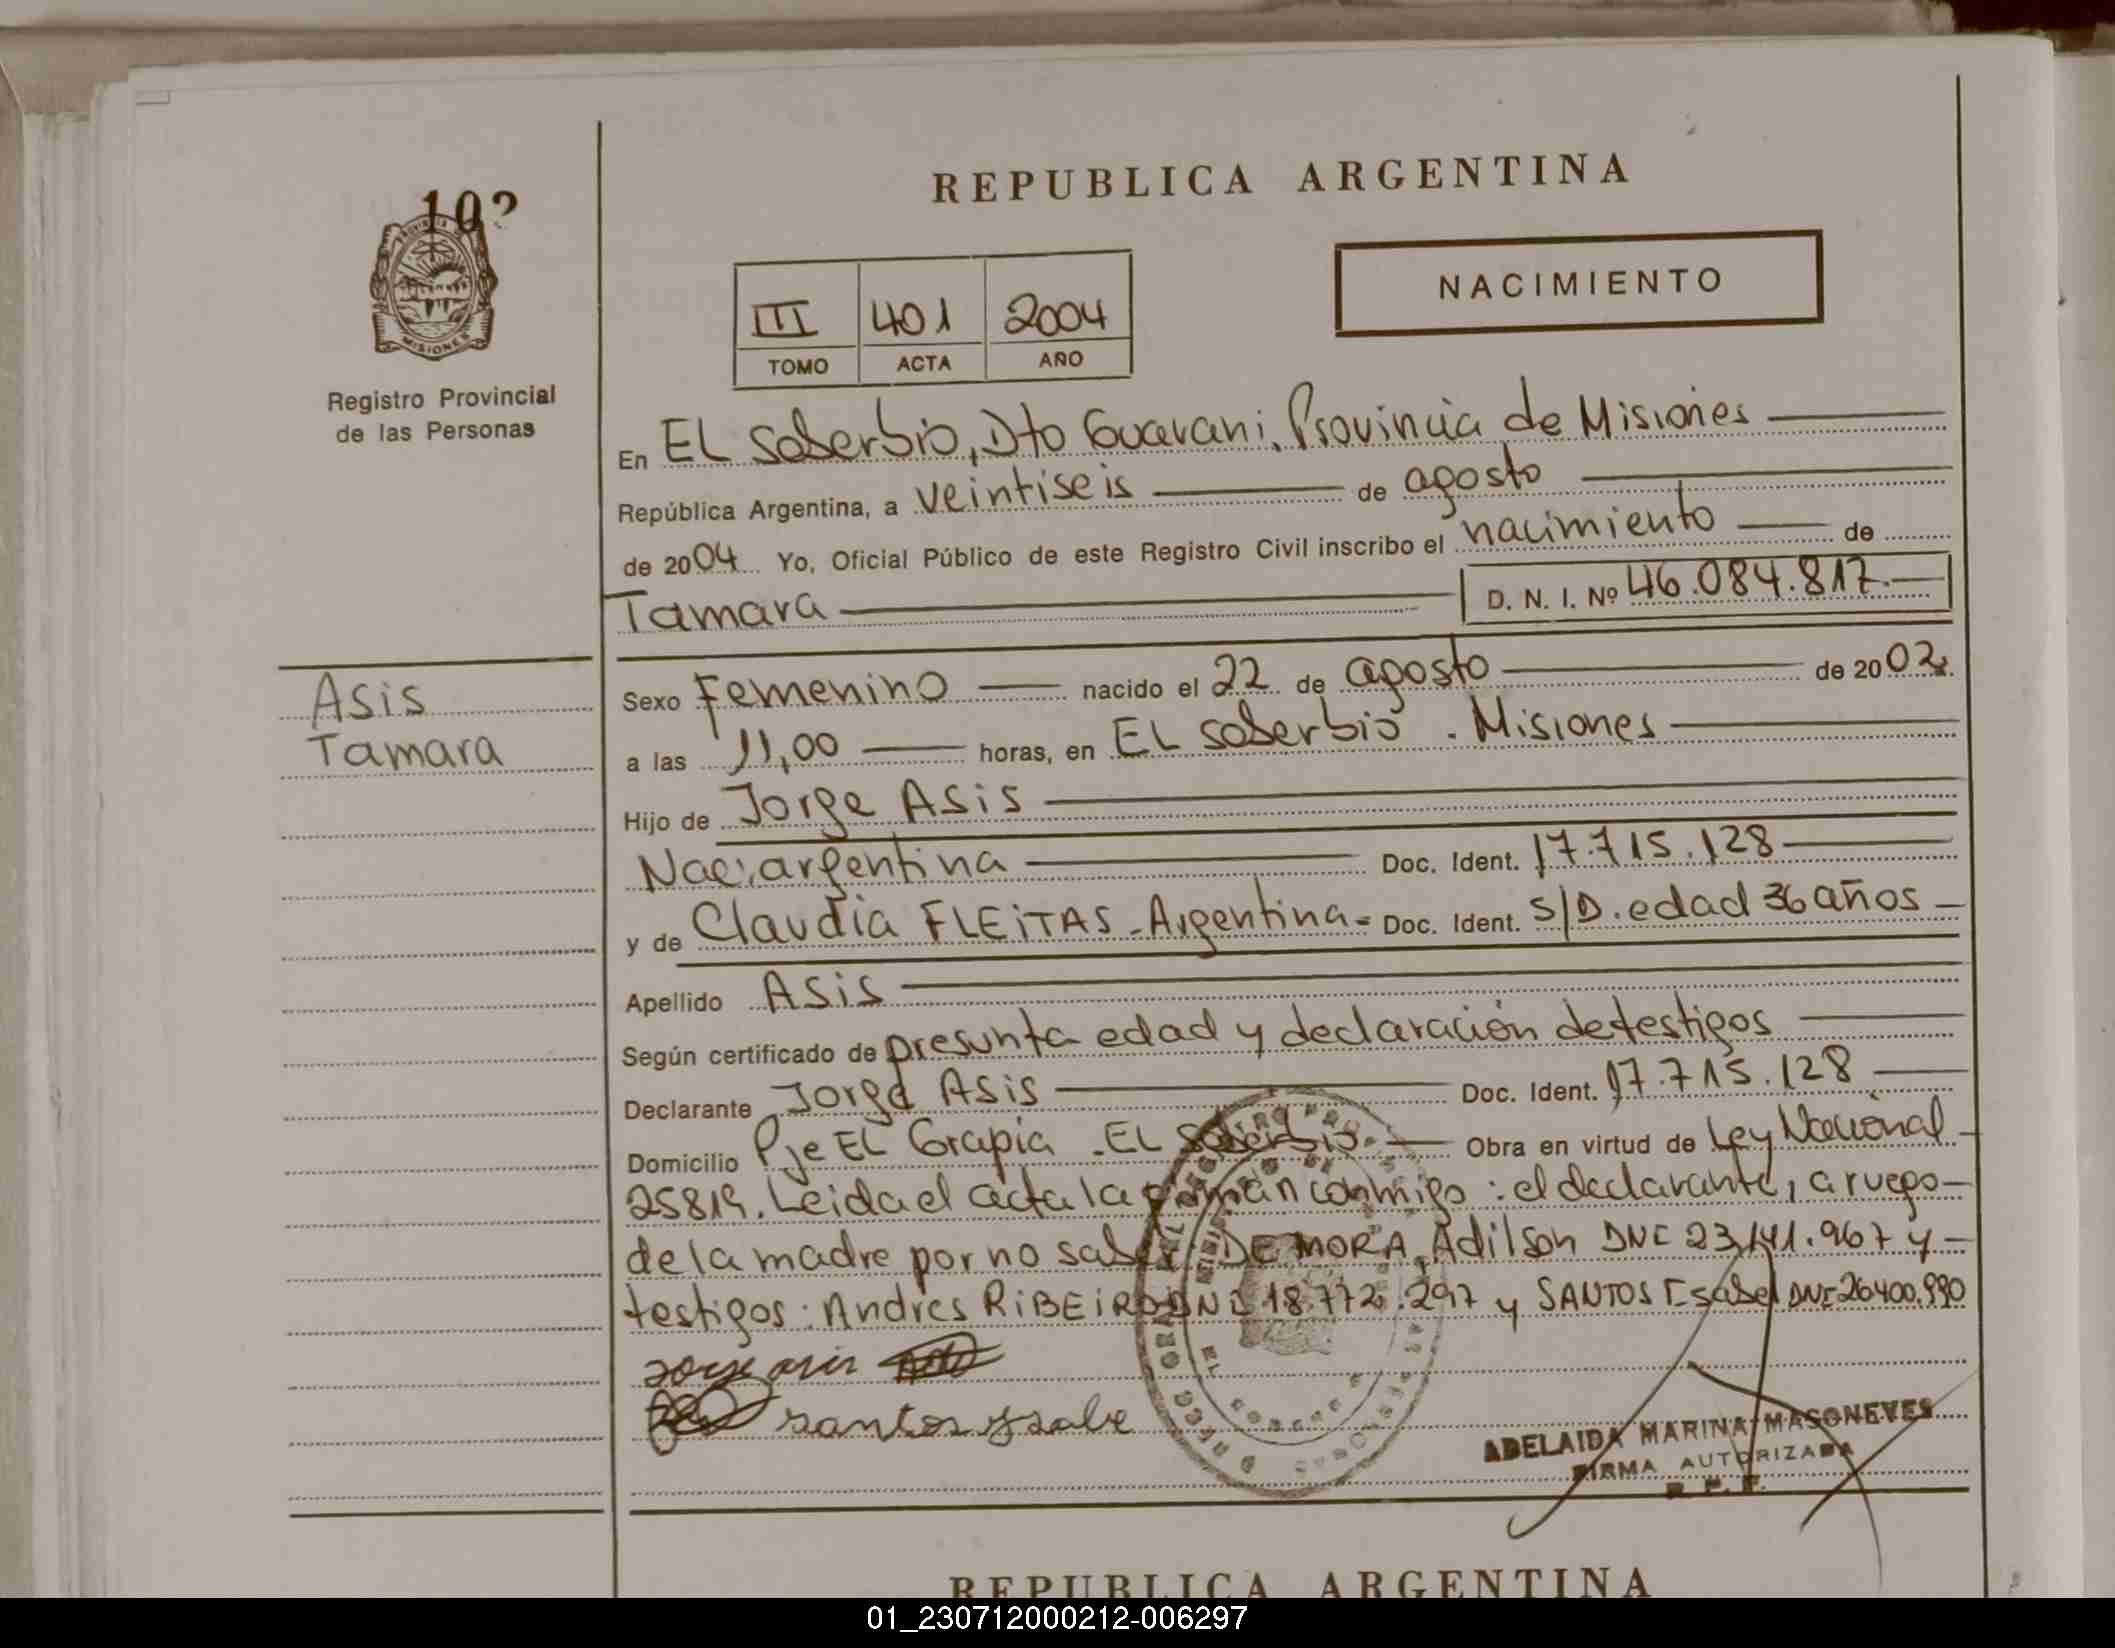 102
REPUBLICA ARGENTINA
NACIMIENTO
III 401 2004
TOMO ACTA AÑO
PROVINCIA DE
MISIONES
Registro Provincial
de las Personas
En EL Soberbio, Dto Guarani, Provincia de Misiones
República Argentina, a veintiseis de agosto
de 2004 Yo, Oficial Público de este Registro Civil inscribo el nacimiento de
Tamara D. N. I. Nº 46.084.817.
Asis
Tamara
Sexo Femenino nacido el 22 de agosto de 2002
a las 11,00 horas, en EL Soberbio . Misiones
Hijo de Jorge Asis
Nac. argentina Doc. Ident. 17.715.128
y de Claudia FLEiTAS - Argentina = Doc. Ident. S/D. edad 36 años
Apellido Asis
Según certificado de presunta edad y declaración de testigos
Declarante Jorge Asis Doc. Ident. 17.715.128
Domicilio Pje EL Grapia - EL Soberbio Obra en virtud de Ley Nacional
25819. Leida el acta la firman conmigo : el declarante, a ruego
de la madre por no saber DE MORA, Adilson DNI 23.141.967 y
testigos : Andres RiBEiRO DNI 18.772.297 y SANTOS Isabel DNI 26400.990
Jorge asis
santos ysabe
ADELAIDA MARINA MASONEVES
FIRMA AUTORIZADA
REPUBLICA ARGENTINA
01_230712000212-006297